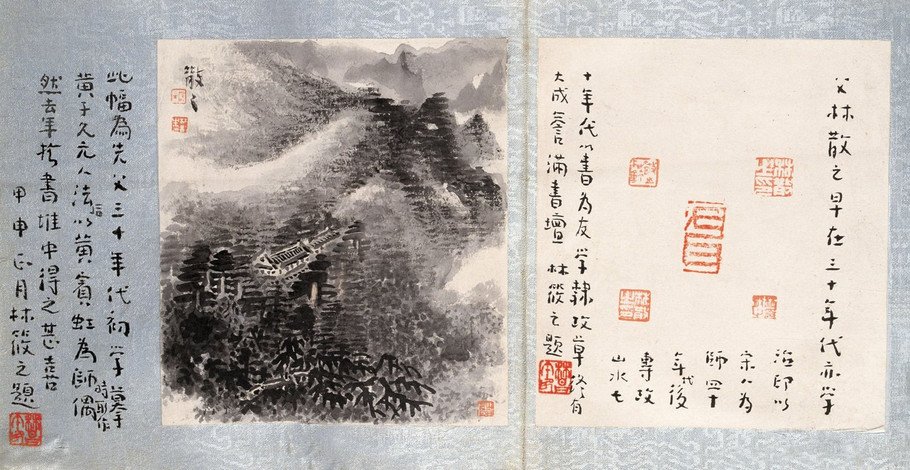 父林散之早在三十年代亦学
治印以
宋人为
师四十
年代後
專攻
山水七
十年代以書为友学隸攻草终有
大成誉满書壇 林筱之题
散之
此幅為先父三十年代初学摹
黄子久元人法以黄賓虹為師時所作偶
然去年於書堆中得之甚喜
甲申正月林筱之題